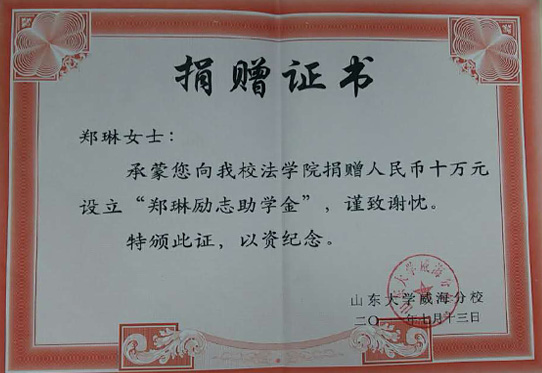 捐赠证书
郑琳女士：
承蒙您向我校法学院捐赠人民币十万元
设立“郑琳励志助学金”，谨致谢忱。
特颁此证，以资纪念。
山东大学威海分校
二〇一一年七月十三日